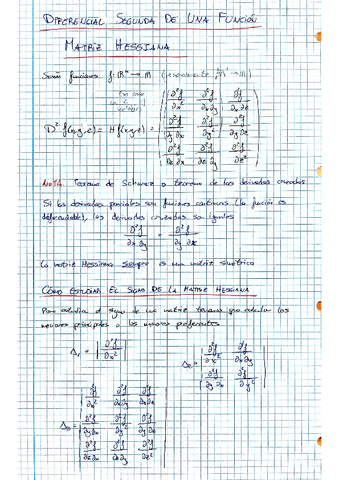 DIFERENCIAL SEGUNDA DE UNA FUNCIÓN
MATRIZ HESSIANA
funciones f: ℝⁿ → ℝ
D²f(x,y,z) = Hf(x,y,z) = | ∂²f/∂x² ∂²f/∂x∂y ∂²f/∂x∂z |
| ∂²f/∂y∂x ∂²f/∂y² ∂²f/∂y∂z |
| ∂²f/∂z∂x ∂²f/∂z∂y ∂²f/∂z² |
NOTA Teorema de Schwarz o teorema de las derivadas cruzadas
Si las derivadas parciales son funciones continuas (la función es
diferenciable), las derivadas cruzadas son iguales
∂²f/∂x∂y = ∂²f/∂y∂x
La matriz Hessiana siempre es una matriz simétrica
CÓMO ESTUDIAR EL SIGNO DE LA MATRIZ HESSIANA
Para estudiar el signo de una matriz tenemos que calcular los
menores principales o los menores preferentes
Δ₁ = | ∂²f/∂x² | Δ₂ = | ∂²f/∂x² ∂²f/∂x∂y |
| ∂²f/∂y∂x ∂²f/∂y² |
Δ₃ = | ∂²f/∂x² ∂²f/∂x∂y ∂²f/∂x∂z |
| ∂²f/∂y∂x ∂²f/∂y² ∂²f/∂y∂z |
| ∂²f/∂z∂x ∂²f/∂z∂y ∂²f/∂z² |